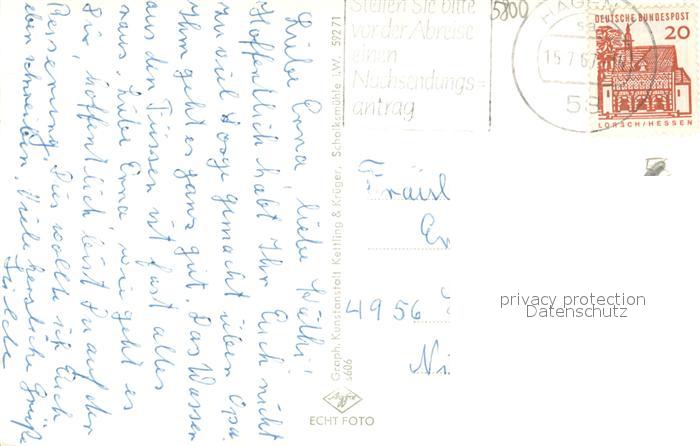 Liebe Erna, liebe Käthi!
Hoffentlich habt Ihr Euch nicht
zu viel Sorge gemacht über Opa.
Ihm geht es ganz gut. Das Wasser
aus den Füssen ist fast alles
raus. Liebe Erna, wie geht es
Dir, hoffentlich bist Du auf der
Besserung. Dies wollte ich Euch
eben schreiben. Viele herzliche Grüße
Graph. Kunstanstalt Kettling & Krüger, Schalksmühle i.W. 59271
s606
Agfa
ECHT FOTO
Stellen Sie bitte
vor der Abreise
einen
Nachsendungs=
antrag
5800
HAGEN
15.7.67
58
DEUTSCHE BUNDESPOST
20
LORSCH/HESSEN
Fräul
Er
4956
Ni
privacy protection
Datenschutz